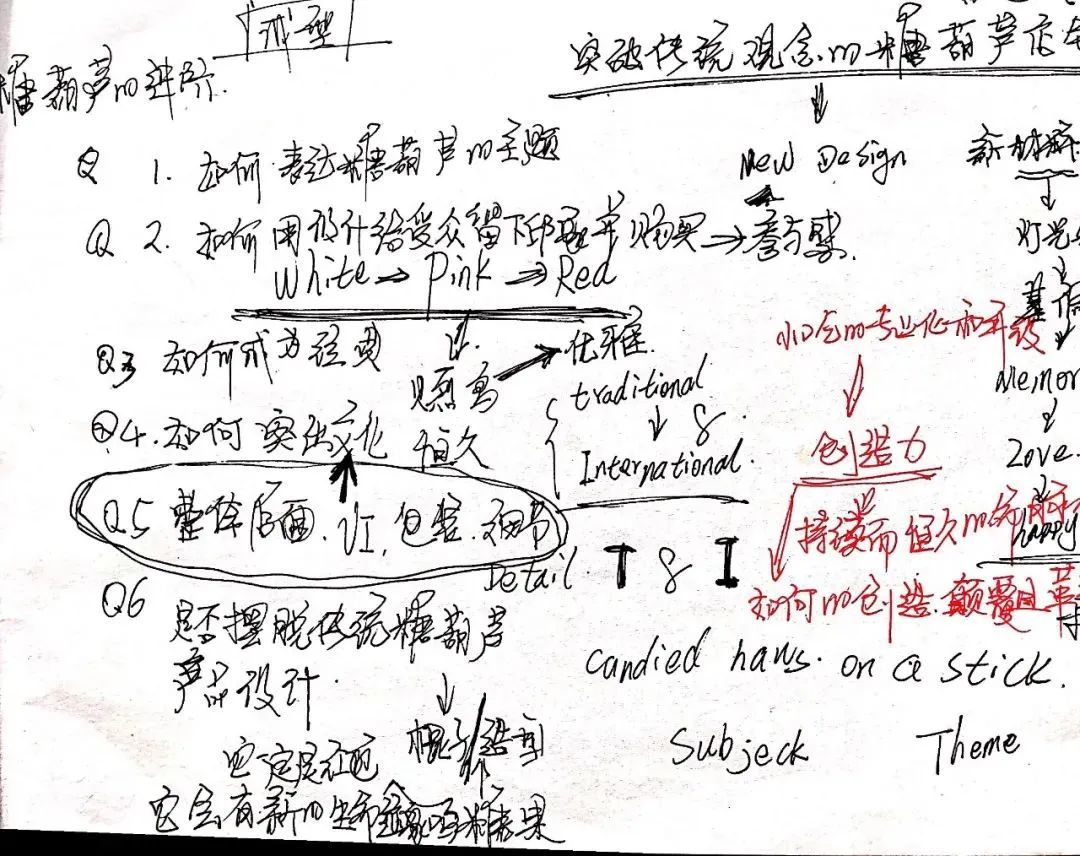 成型
糖葫芦的进阶.
突破传统观念的糖葫芦店
New Design
Q 1. 如何表达糖葫芦的主题
Q 2. 如何用设计给受众留下印象并购买→参与感.
White → Pink → Red
灯光
Q3 如何成为经典
优雅.
小众的专业化和升级
Memor
traditional
&
International.
Q4. 如何突出文化
恒久
创造力
Love.
Q5 整体店面. VI, 包装. 细节
Detail.
T & I
持续而恒久的
happy
如何的创造. 颠覆
Q6
是否摆脱传统糖葫芦
产品设计.
candied haws. on a stick.
Subjeck
Theme
它会有新的生命 糖果